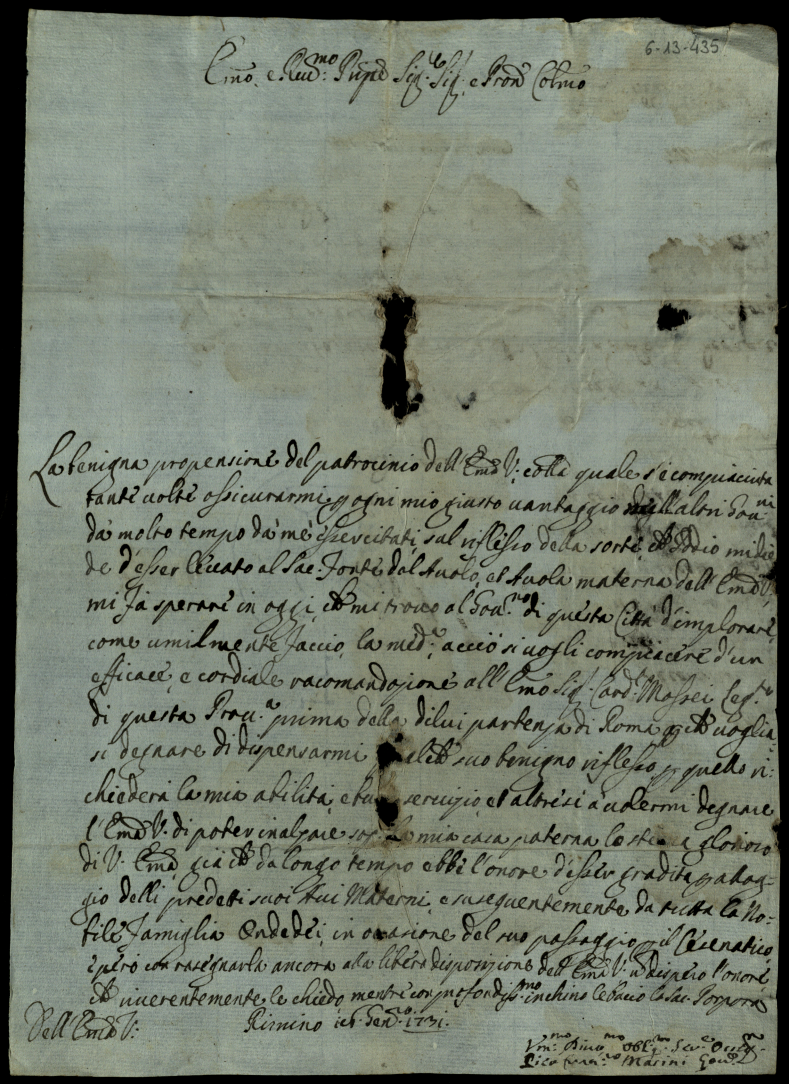 6-13-435
Emo. e Reud.mo Pnpe Sig.e Sig. e Pron Colmo
La benigna propensione del patrocinio dell'Emza V: colla quale s'è compiaciuta
tante volte assicurarmi p ogni mio giusto vantaggio nell'altri Gou.ni
da molto tempo da me essercitati, sul riflesso della sorte, che Iddio mi die
de d'esser levato al Sac. Fonte dal Auolo, et Auola materna dell'Emza V.
mi fa sperare in oggi, che mi trovo al Gou.no di questa Città d'implorare,
come umilmente faccio, la med.a, acciò si vogli compiacere d'un
efficace, e cordiale racomandazione all'Emo Sig. Card. Massei Leg.to
di questa Prou.a prima della di lui partenza di Roma, che voglia-
si degnare di dispensarmi suo benigno riflesso, p quello ri:
chiederà la mia abilità, e servizio, et altresì a volermi degnare
l'Emza V: di poter inalzare mia casa paterna lo glorioso
di V. Emza, già che da longo tempo ebbe l'onore d'esser gradita p allog-
gio delli predetti suoi Aui Materni, e susequentemente da tutta la No-
bile famiglia Ondedei, in ocasione del suo passaggio p il Cesenatico,
e però con rasegnarla ancora alla libera disposizione dell'Emza V: n dispero l'onore,
che riverentemente le chiedo, mentre con profondiss.mo inchino le bacio la Sac. Porpora
Dell'Emza V:
Rimino 16 Gen.ro 1731.
Vm.mo Diuo.mo Obl.mo Ser.e
Marini Gou.re